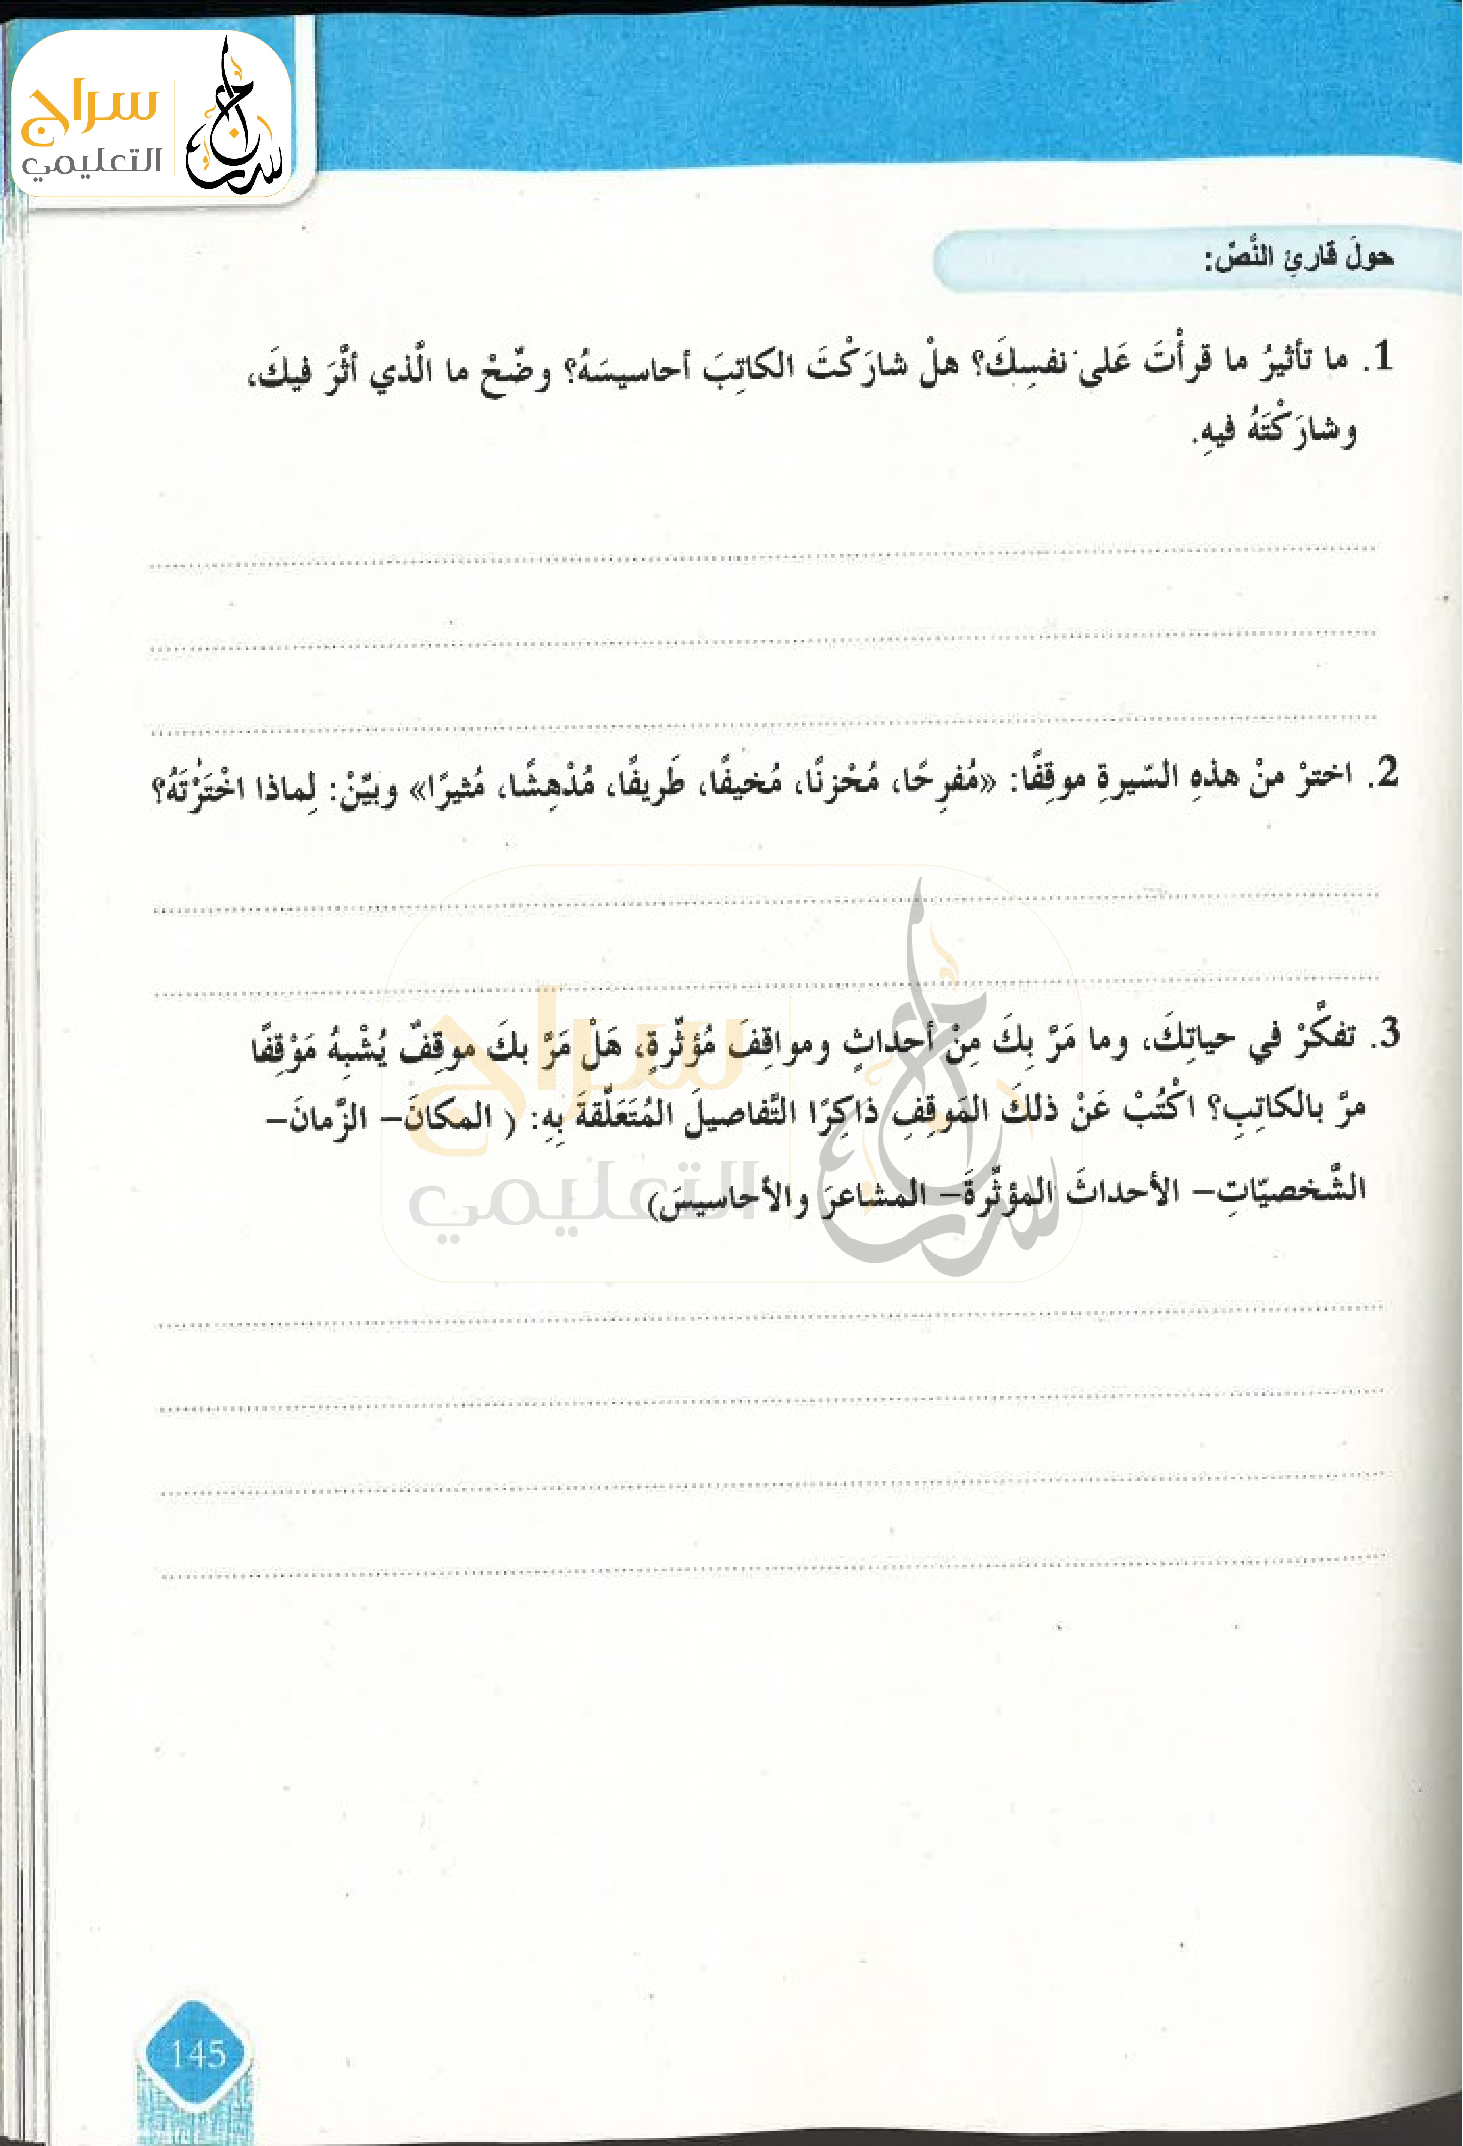 سراج
التعليمي
حولَ قارئِ النَّصّ:
1. ما تأثيرُ ما قرأْتَ عَلى نفسِكَ؟ هلْ شارَكْتَ الكاتِبَ أحاسيسَهُ؟ وضّحْ ما الَّذي أثَّرَ فيكَ،
وشارَكْتَهُ فيهِ.
2. اخترْ منْ هذهِ السّيرةِ موقِفًا: «مُفرِحًا، مُحْزنًا، مُخيفًا، طَريفًا، مُدْهِشًا، مُثيرًا» وبيِّنْ: لِماذا اخْتَرْتَهُ؟
3. تفكَّرْ في حياتِكَ، وما مَرَّ بِكَ مِنْ أحداثٍ ومواقِفَ مُؤثّرةٍ، هَلْ مَرَّ بكَ موقِفٌ يُشْبِهُ مَوْقِفًا
مرَّ بالكاتِبِ؟ اكْتُبْ عَنْ ذلكَ المَوقِفِ ذاكِرًا التَّفاصيلَ المُتَعَلّقةَ بِهِ: ( المكانَ– الزَّمانَ–
الشَّخصيّاتِ– الأحداثَ المؤثّرةَ– المشاعرَ والأحاسيسَ)
سراج
التعليمي
145